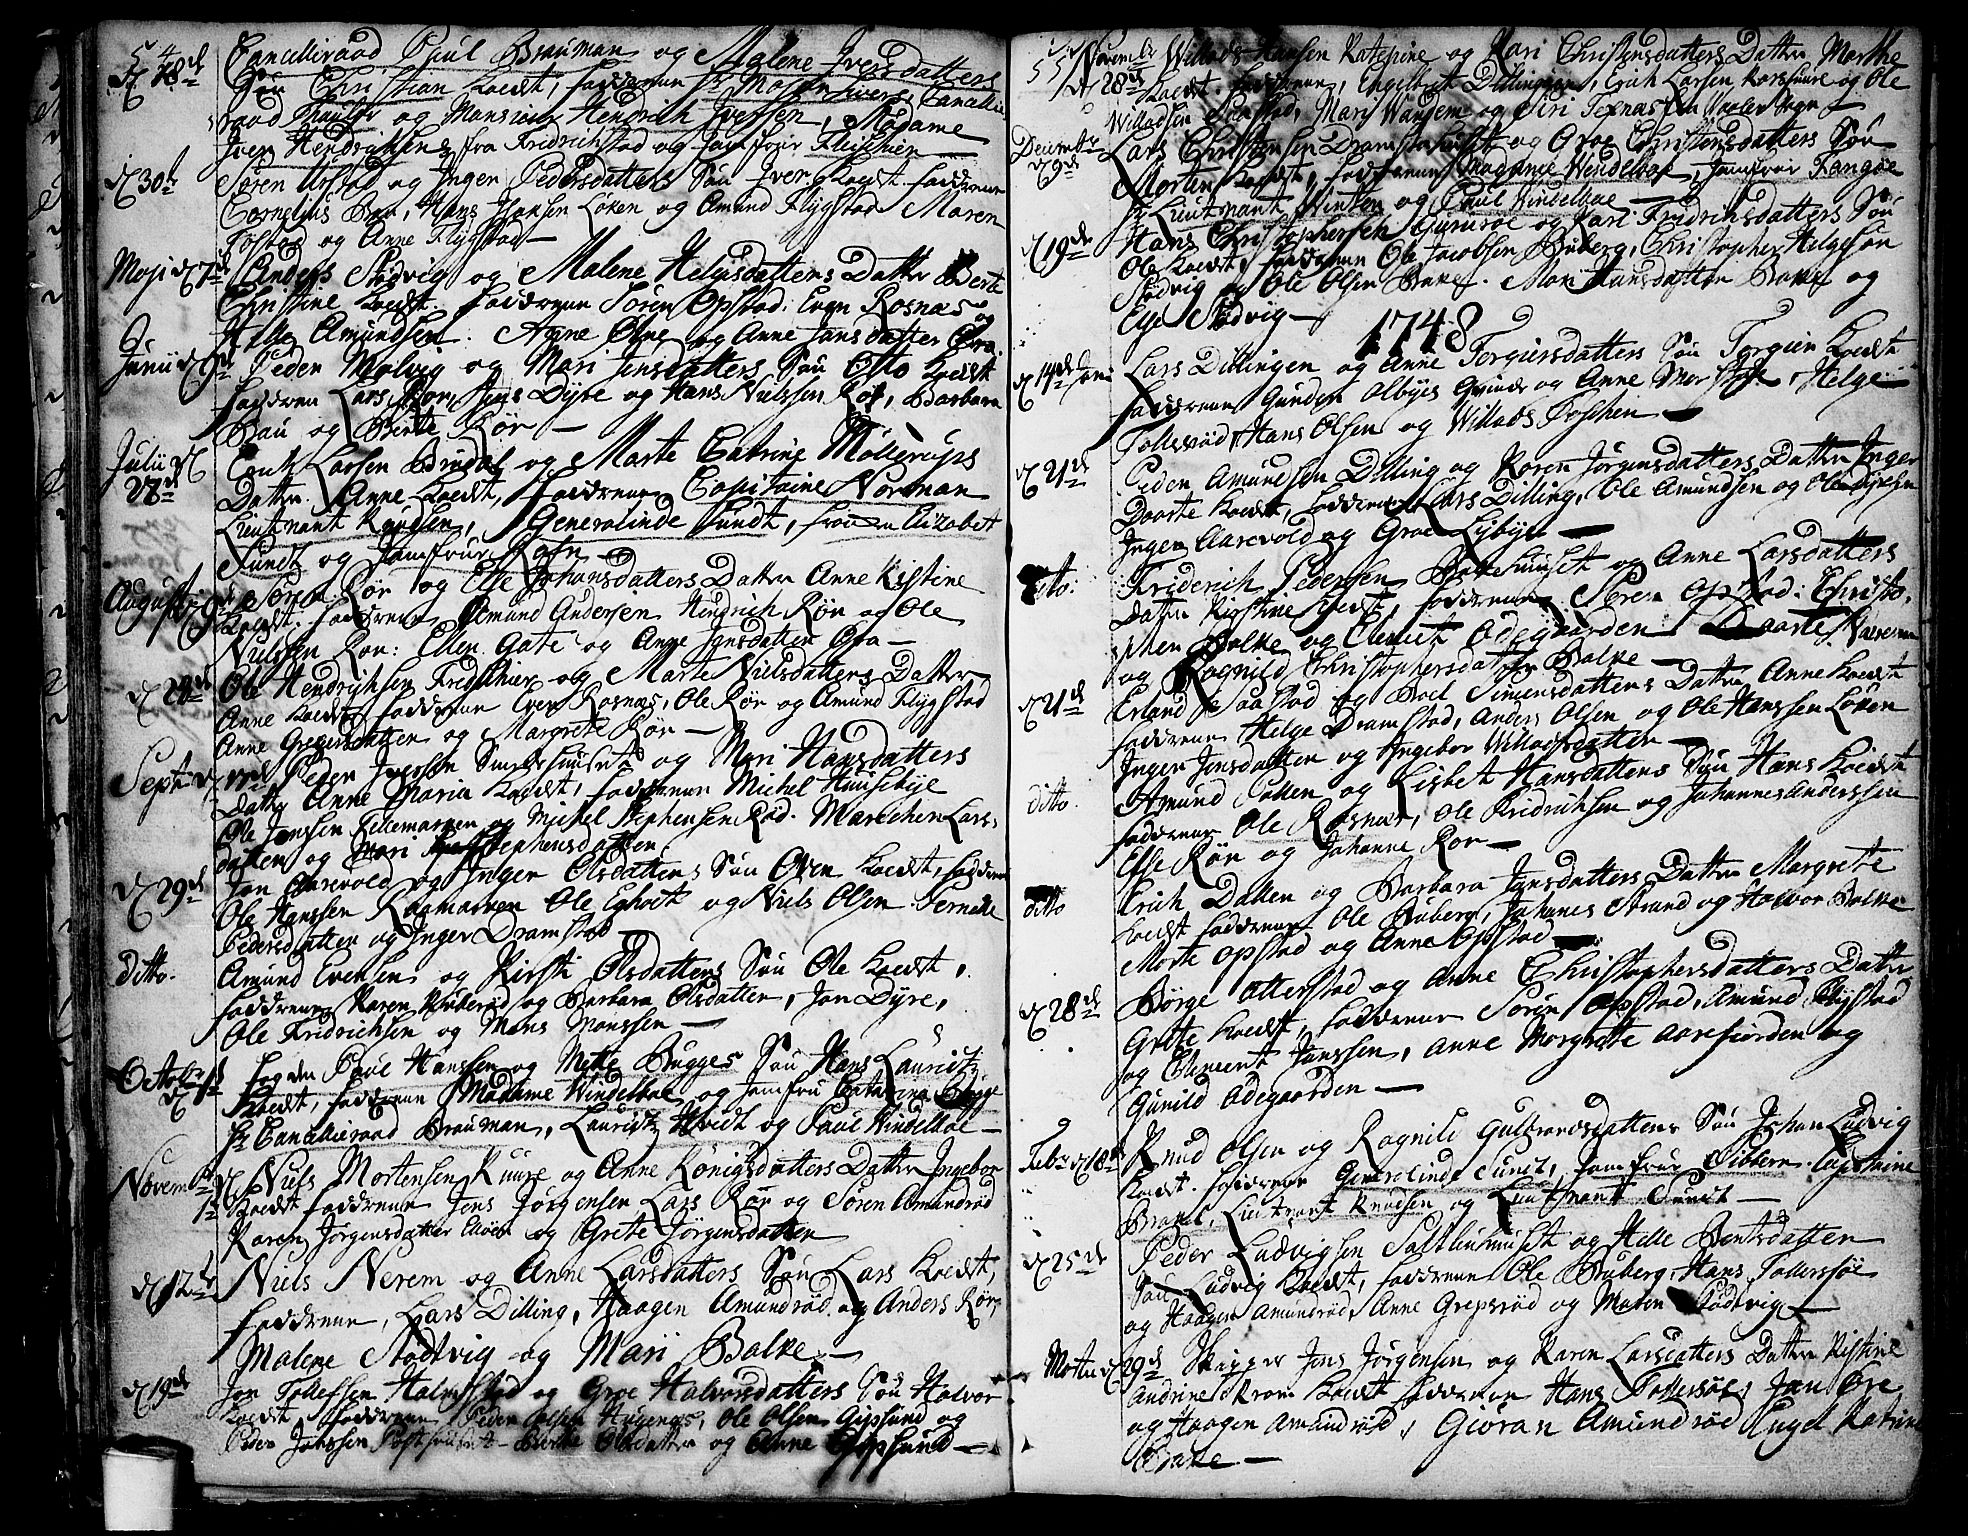 54
d 18de Cancelliraad Poul Brauman og Malene Iversdatters
Søn Christian kaldt, fadderne Hr Morten Ivers, Cancellie
raad og Monsieur Hendrich Iversen, Madame
Iver Hendrichsens fra Fridrichstad og Jomfrue
d 30te Søren og Inger Pedersdatters Søn Iver Kaldt. fadderne
Cornelius Bau, Hans Hansen Løken og Amund Flygstad Maren
og Anne Flygstad —
Maji d 7de Anders Stødvig og Malene Helgesdatters Datter Berte
Christine Kaldt. fadderne Søren Opstad: Even Rosnæs og
Helge Amundsen. Anne og Anne Jansdatter Øra
Junii d 9de Peder Molvig og Mari Jensdatters Søn Otto kaldt
fadderne Lars Rør, Jens Dyre og Hans Nielssen Rør, Barbara
Bau og Berte Rør —
Julii d 28de Erich Larsen og Marte Catrine Møllerups
Datter Anne kaldt, fadderne Capitaine Norman
Lieutnant Knudsen, Generalinde Sundt, frøken Elizabet
Sundt og Jomfrue —
Augusti d 9de Søren Rør og Else Johansdatters Datter Anne Kistine
kaldt. fadderne Amund Andersen Hendrich Rør og Ole
Nielssen Rør: Ellen Gate og Anne Jensdatter Øra —
d Ole Hendrichsen og Marte Nielsdatters Datter
Anne kaldt. fadderne Even Rosnæs, Ole Rør og Amund Flygstad
Anne Gregersdatter og Margrete Rør —
Septr d 17de Peder og Mari Hansdatters
Datter Anne Maria kaldt, fadderne Michel Huusebye
Ole Jenssen og Michel Stephensen Rød. Maren Lars-
datter og Mari Stephensdatter
d 29de Jan Aarevold og Inger Olsdatters Søn Oven kaldt, fadderne
Ole Hanssen Ole og Niels Olsen
Pedersdatter og Inger Dramstad —
ditto. Amund Evensen og Kirsti Olsdatters Søn Ole kaldt,
fadderne Karen og Barbara Olsdatter, Jan Dyre,
Ole Fridrichsen og Mons Monssen —
Octobr d Fogden Paul Hanssen og Mette Bugges Søn Hans Lauridtz
kaldt, fadderne Madame Windelboe og Jomfru Catarina Bugge
Hr Cancellieraad Brauman, Lauridtz Hvidt og Paul Windelboe —
Novembr d 1te Niels Mortensen Kuure og Anne Königsdatters Datter Ingebor
kaldt fadderne Jens Jørgensen Lars Rør og Søren Amundrød
Karen Jørgensdatter og Grete Jørgensdatter
d 12te Niels Nerem og Anne Larsdatters Søn Lars kaldt,
fadderne, Lars Dilling, Haagen Amundrød og Anders Rør,
Malene Stødtvig og Mari Balke —
d 19de Jon Tollefsen Halmstad og Groe Halvorsdatters Søn Halvor
kaldt, fadderne Peder Olsen Ole Olsen Gipsund og
Peder Janssen Birthe Olsdatter og Anne Gipsund —
55
Novembr d 28de Willads Hansen og Kari Christensdatters Datter Marthe
kaldt. fadderne, Engelbret Dillingøen, Erich Larsen og Ole
Willadsen Mari Wansem og Siri i Waaler Sogn —
Decembr d 9de Lars Christensen Dramstahuuset og Groe Christensdatters Søn
Morten kaldt, fadderne Madame Windelboe, Jomfrue
Hr Lieutnant Winter og Paul Windelboe —
d 19de Hans Christophersen og Kari Fridrichsdatters Søn
Ole kaldt, fadderne Ole Jacobsen Buberg, Christopher Helgesøn
Stødvig og Ole Olsen Bakke. Mari Hansdatter Balke og
Else Stødvig —
1748
d 14de Jani Lars Dillingen og Anne Torgiersdatters Søn Torgier kaldt
fadderne Gunder Olbyes og Anne Helge
Tollersrød, Hans Olsen og Willads —
d 21de Peder Amundsen Dilling og Karen Jørgensdatters Datter Inger
Daarte kaldt, fadderne Lars Dilling, Ole Amundsen og Ole
Inger Aarevold og Groe —
ditto. Friderich Pedersen Balkehuuset og Anne Larsdatters
Datter Kirstine kaldt, fadderne Søren Opstad: Christo-
pher Balke og Clemet Ødegaarden Daarte
og Ragnild Christophersdatter Balke —
d 21de Erland Saastad og Boel Simensdatters Datter Anne kaldt
fadderne Helge Dramstad, Anders Olsen og Ole Hanssen Løken
Inger Jensdatter og Ingebor Willadsdatter —
ditto. Amund Løken og Lisbet Hansdatters Søn Hans kaldt
fadderne Ole Rosnæs, Ole Fridrichsen og Johannes Anderssen
Else Rør og Johanne Rør —
ditto Erich Dalen og Barbara Jansdatters Datter Margrete
kaldt fadderne Ole Buberg, Johanes Strand og Halvor Balke
Morte Opstad og Anne Opstad —
d 28de Børge Otterstad og Anne Christophersdatters Datter
Grete kaldt, fadderne Søren Opstad, Amund Flygstad
og Clement Janssen, Anne Margrete Aarefiorden og
Gunild Ødegaarden —
Febr d 18de Knud Olsen og Ragnild Gulbrandsdatters Søn Johan Ludvig
kaldt. fadderne Generalinde Sundt, Jomfrue Sibbern. Capitaine
Lieutnant Knudsen og Lieutnant Sundt —
d 25de Peder Ludvigsen og Helle Bentsdatter
Søn Ludvig kaldt, fadderne Ole Buberg, Hans Tollersrøe
og Haagen Amundrød, Anne Grepsrød og Maren Stødtvig —
Martii d 29de Skipper Jens Jørgensen og Karen Larsdatters Datter Kistine
Andrine kaldt fadderne Hans Tollersrøe, Jan Øre
og Haagen Amundrød, Giøran Amundrød Katrine
—